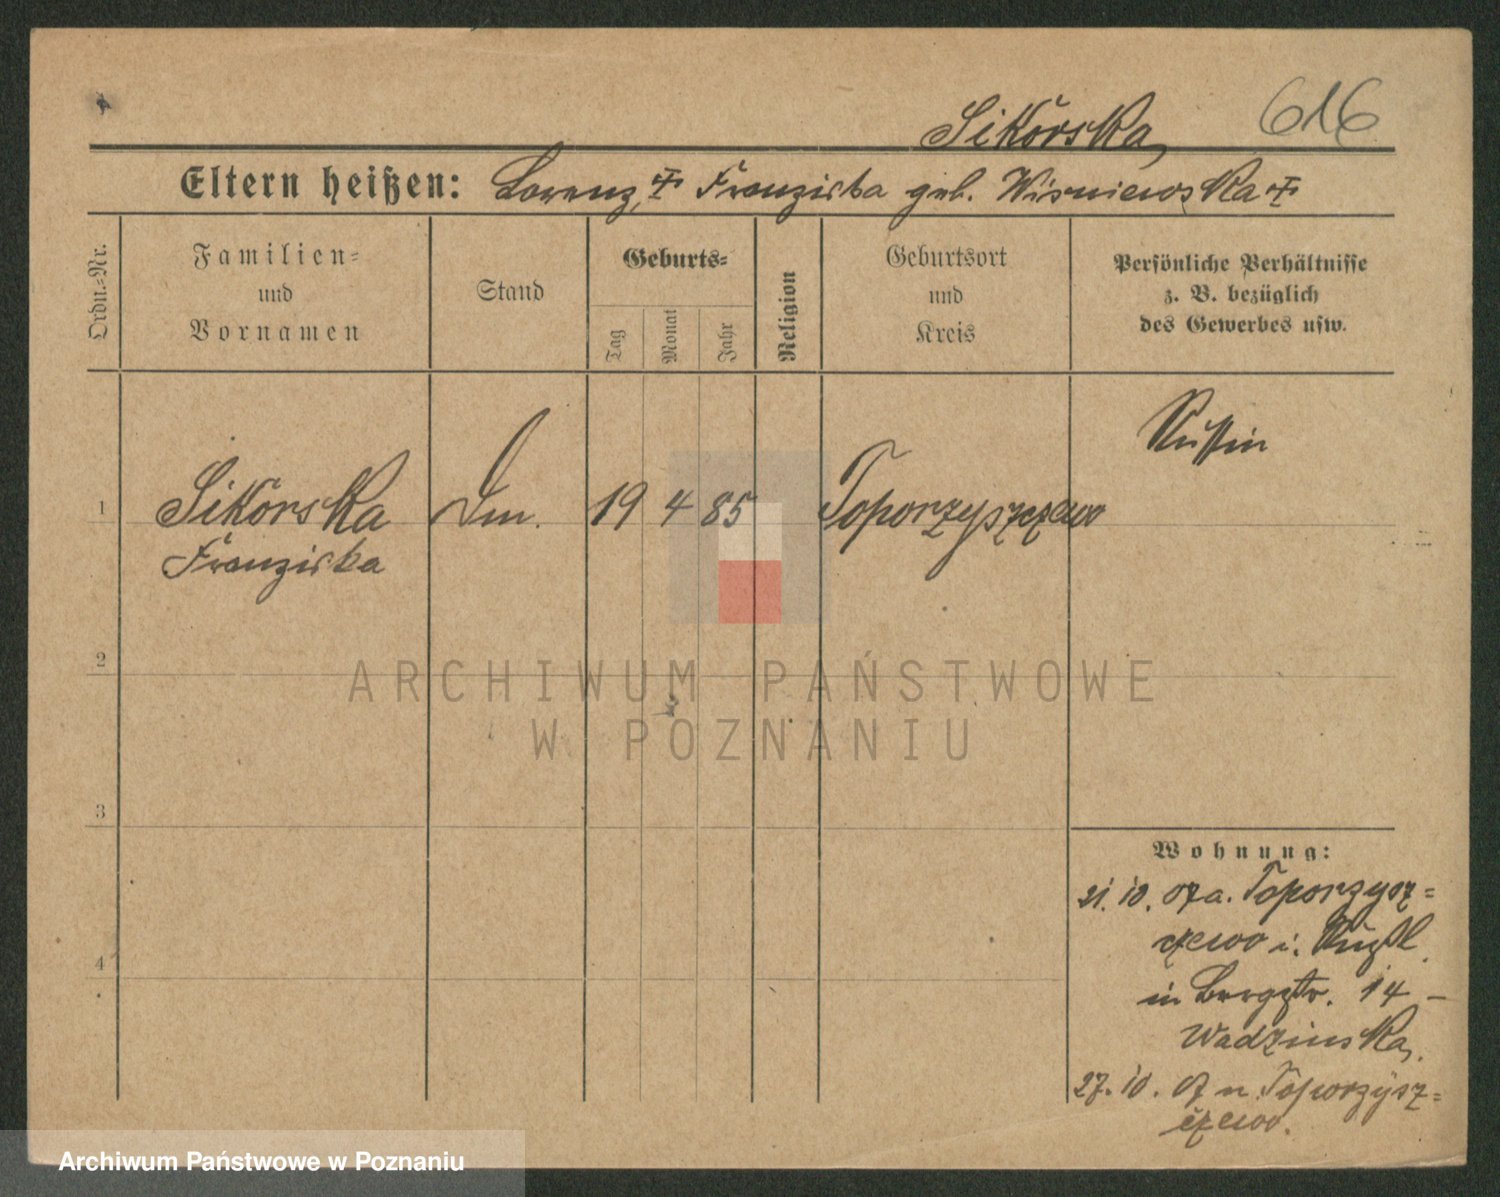 Sikorska, 616
Eltern heißen: Lorenz, Franziska geb. Wisniewska
Ordn.-Nr.
Familien-
und
Vornamen
Stand
Geburts-
Tag
Monat
Jahr
Religion
Geburtsort
und
Kreis
Persönliche Verhältnisse
z. B. bezüglich
des Gewerbes usw.
1 Sikorska 19 4 85 Toporzyszczewo
Franziska
2
3
4
Wohnung:
21. 10. 07 a. Toporzysz=
czewo i.
in Bergstr. 14 –
Wadzinska,
27. 10. 07 n. Toporzysz=
czewo.
ARCHIWUM PAŃSTWOWE
W POZNANIU
Archiwum Państwowe w Poznaniu